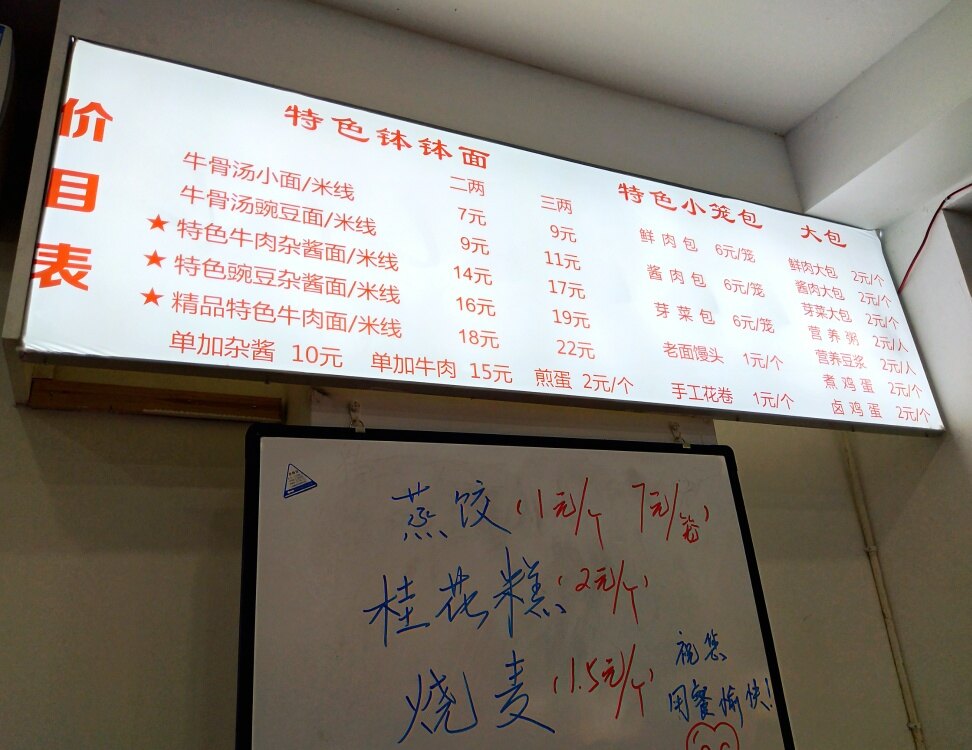 价目表
特色钵钵面
二两 三两
牛骨汤小面/米线 7元 9元
牛骨汤豌豆面/米线 9元 11元
★ 特色牛肉杂酱面/米线 14元 17元
★ 特色豌豆杂酱面/米线 16元 19元
★ 精品特色牛肉面/米线 18元 22元
单加杂酱 10元 单加牛肉 15元 煎蛋 2元/个
特色小笼包
鲜肉包 6元/笼
酱肉包 6元/笼
芽菜包 6元/笼
老面馒头 1元/个
手工花卷 1元/个
大包
鲜肉大包 2元/个
酱肉大包 2元/个
芽菜大包 2元/个
营养粥 2元/人
营养豆浆 2元/人
煮鸡蛋 2元/个
卤鸡蛋 2元/个
蒸饺(1元/个 7元/笼)
桂花糕(2元/个)
烧麦(1.5元/个)
祝您
用餐愉快!